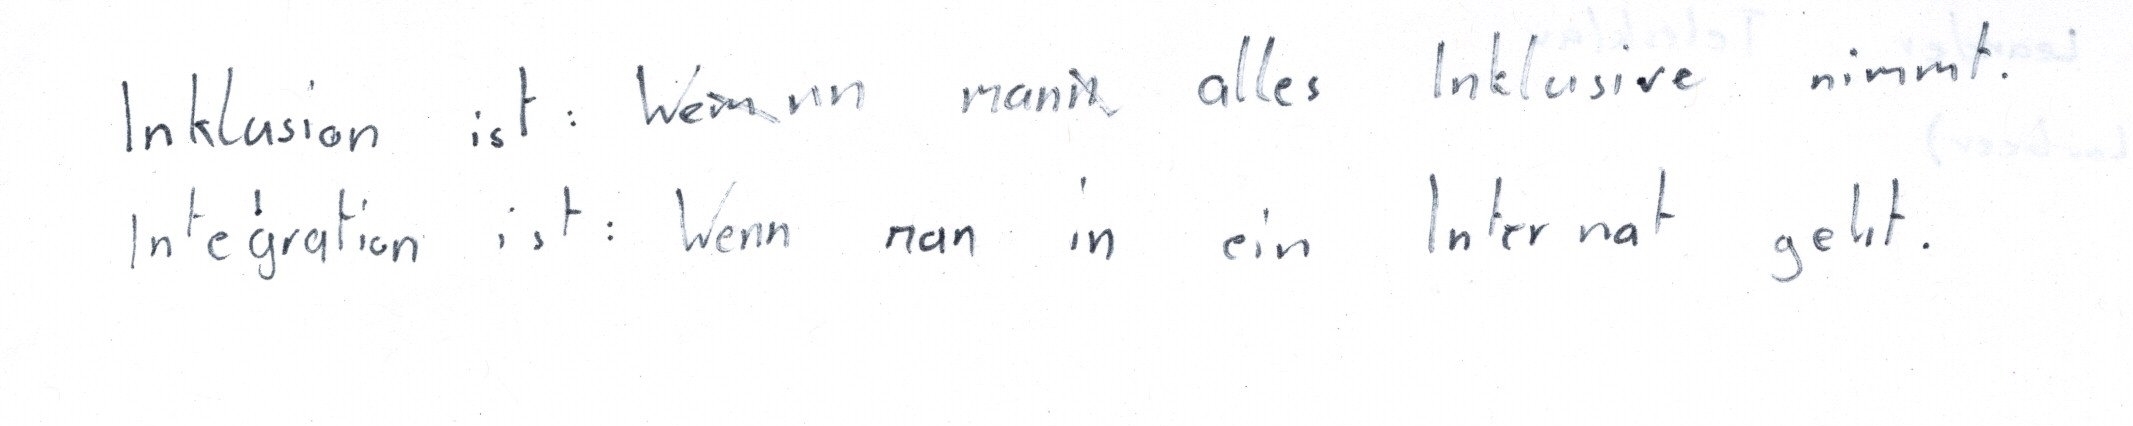 Inklusion ist: Wenn man alles Inklusive nimmt.
Integration ist: Wenn man in ein Internat geht.